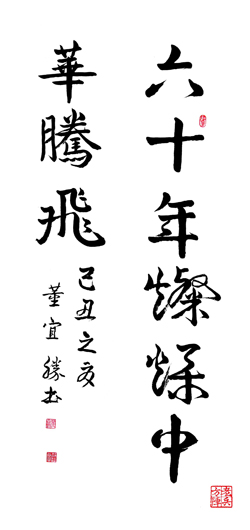 六十年燦爍中
華騰飛
己丑之夏
董宜勝书